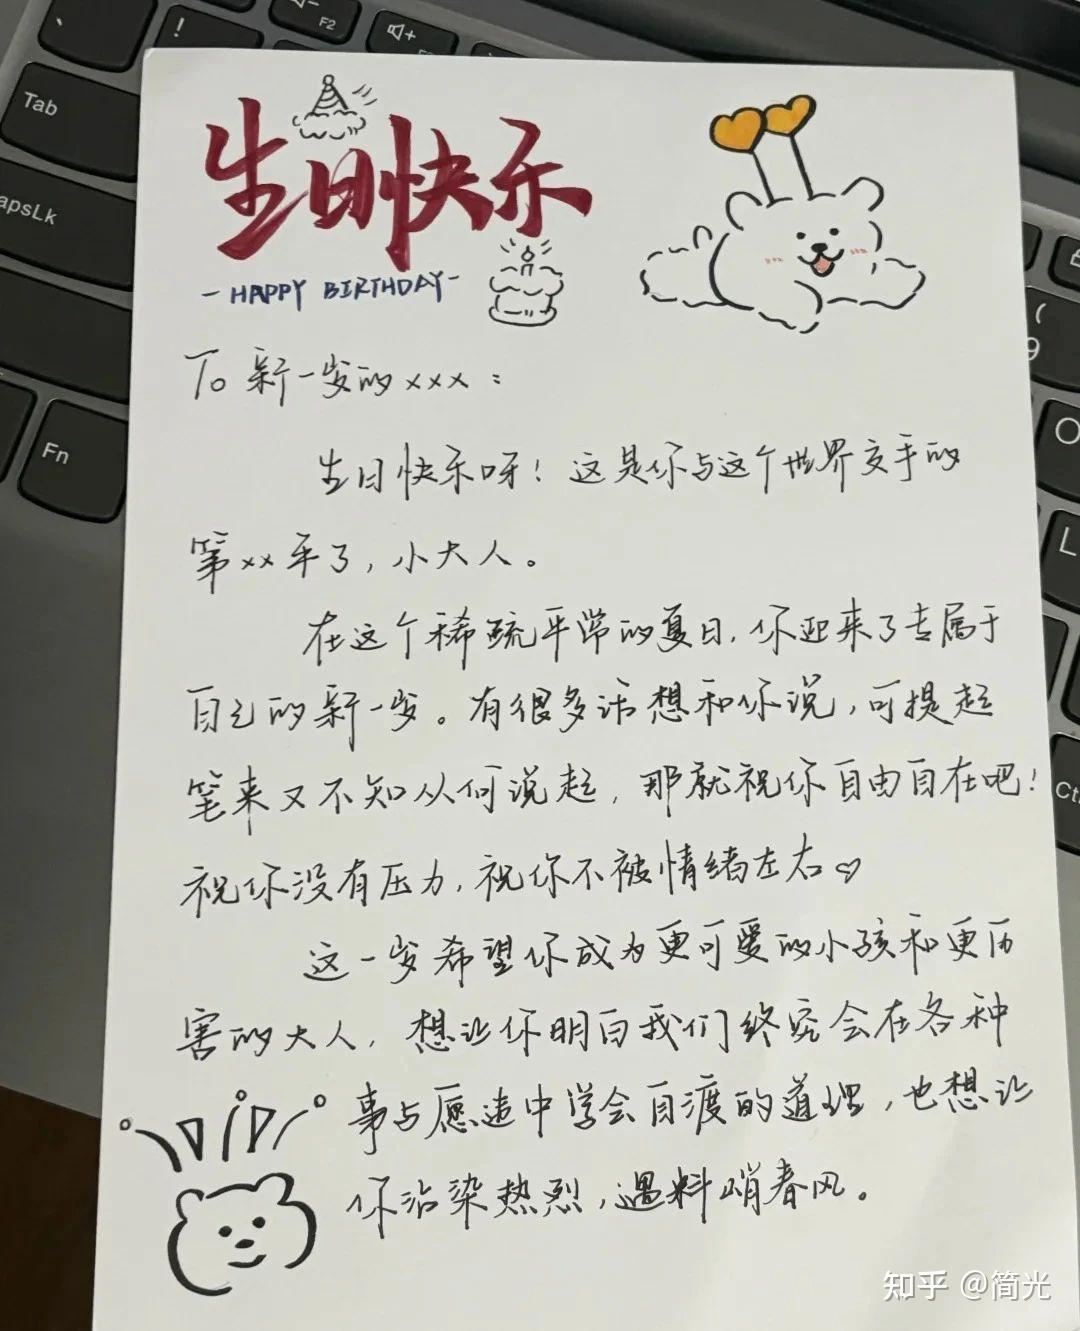 Tab
CapsLk
Fn
F2
!
(
9
O
L
Ctrl
生日快乐
-HAPPY BIRTHDAY-
To 新一岁的xxx：
生日快乐呀！这是你与这个世界交手的
第xx年了，小大人。
在这个稀疏平常的夏日，你迎来了专属于
自己的新一岁。有很多话想和你说，可提起
笔来又不知从何说起，那就祝你自由自在吧！
祝你没有压力，祝你不被情绪左右♡
这一岁希望你成为更可爱的小孩和更历
害的大人，想让你明白我们终究会在各种
事与愿违中学会自渡的道理，也想让
你沾染热烈，遇料峭春风。
知乎 @简光